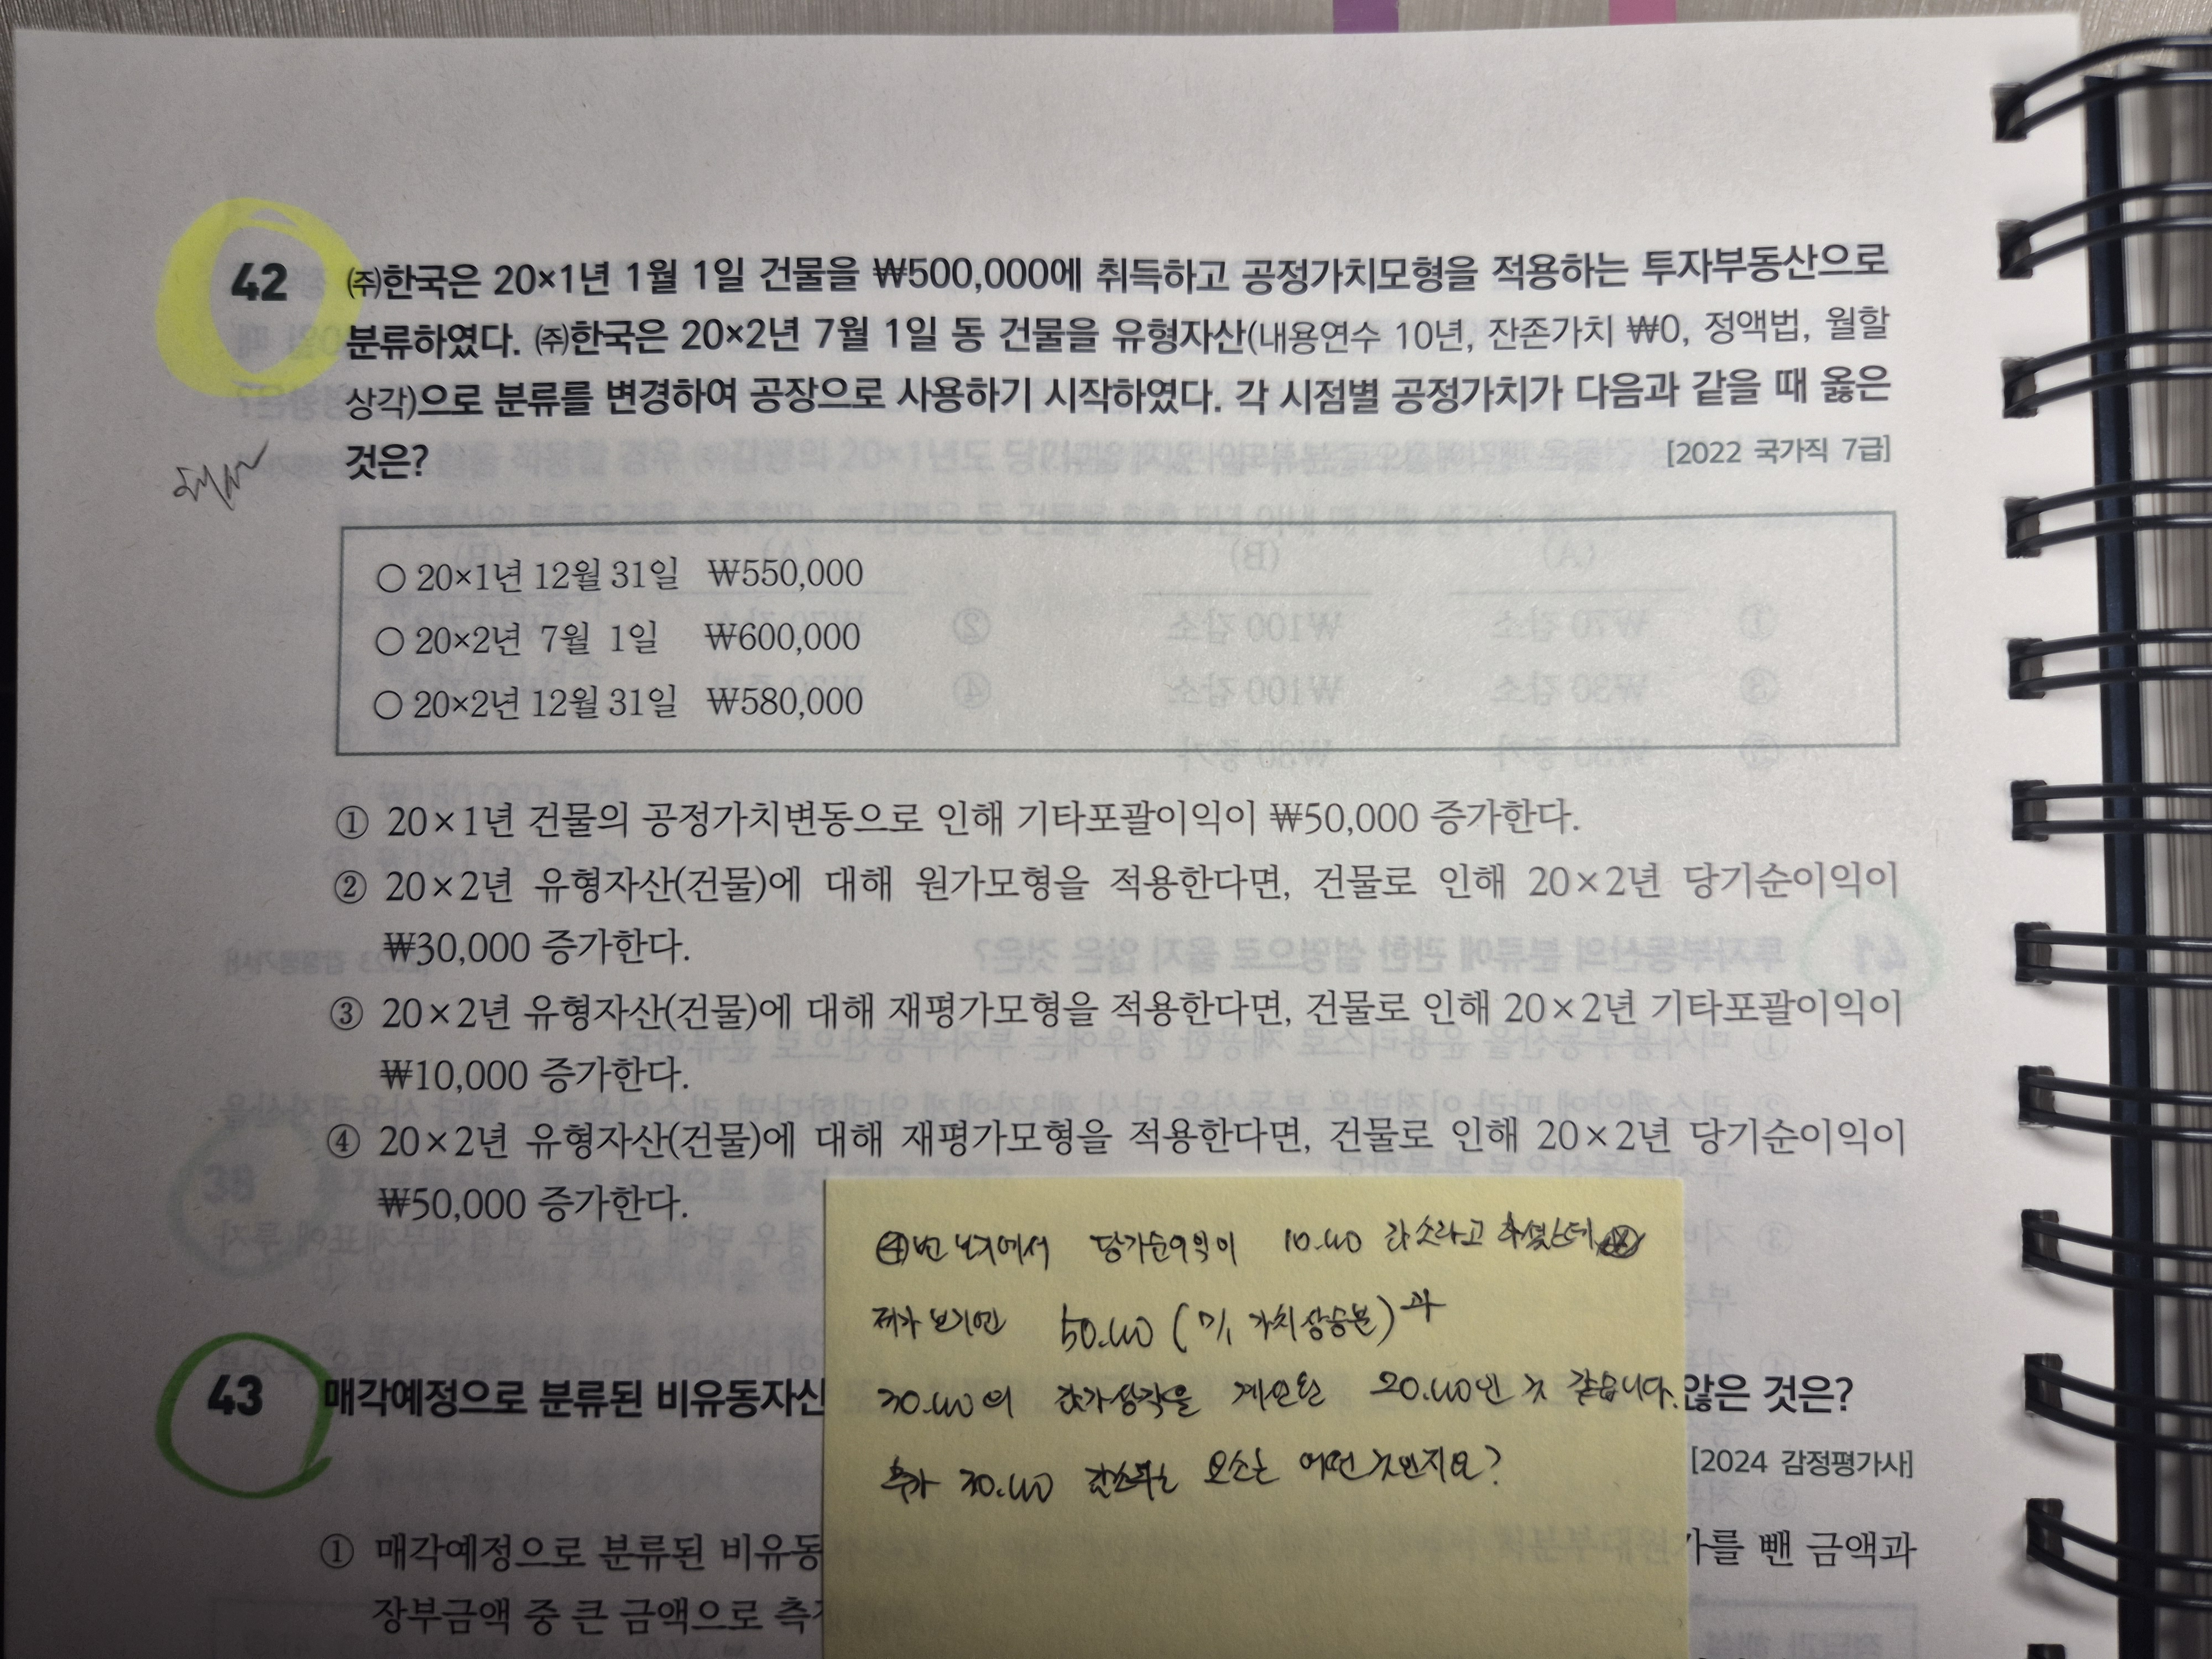 42 ㈜한국은 20×1년 1월 1일 건물을 ₩500,000에 취득하고 공정가치모형을 적용하는 투자부동산으로
분류하였다. ㈜한국은 20×2년 7월 1일 동 건물을 유형자산(내용연수 10년, 잔존가치 ₩0, 정액법, 월할
상각)으로 분류를 변경하여 공장으로 사용하기 시작하였다. 각 시점별 공정가치가 다음과 같을 때 옳은
것은? [2022 국가직 7급]
○ 20×1년 12월 31일 ₩550,000
○ 20×2년 7월 1일 ₩600,000
○ 20×2년 12월 31일 ₩580,000
① 20×1년 건물의 공정가치변동으로 인해 기타포괄이익이 ₩50,000 증가한다.
② 20×2년 유형자산(건물)에 대해 원가모형을 적용한다면, 건물로 인해 20×2년 당기순이익이
₩30,000 증가한다.
③ 20×2년 유형자산(건물)에 대해 재평가모형을 적용한다면, 건물로 인해 20×2년 기타포괄이익이
₩10,000 증가한다.
④ 20×2년 유형자산(건물)에 대해 재평가모형을 적용한다면, 건물로 인해 20×2년 당기순이익이
₩50,000 증가한다.
④번 보기에서 당기순이익이 감소라고 하셨는데
제가 보기엔 (7/1 가치상승분)과
감가상각을 것 같습니다.
추가 감소되는 요소는 어떤것인지요?
43 매각예정으로 분류된 비유동자산 않은 것은?
[2024 감정평가사]
① 매각예정으로 분류된 비유동 가를 뺀 금액과
장부금액 중 큰 금액으로 측정